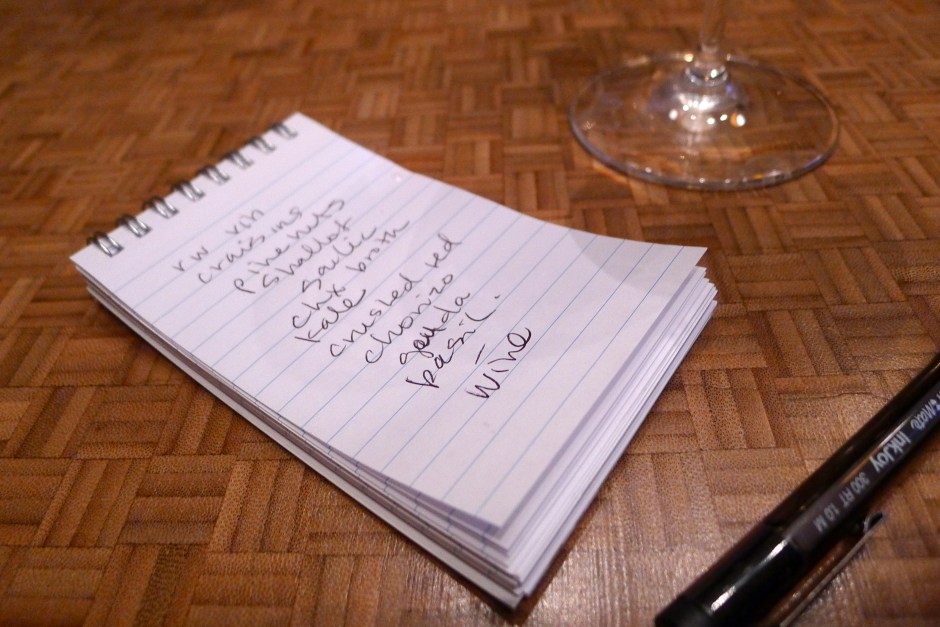 rw vin
craisins
pine nuts
shallot
garlic
chx broth
kale
crushed red
chorizo
gouda
basil.
wine
InkJoy 300 RT 1.0 M